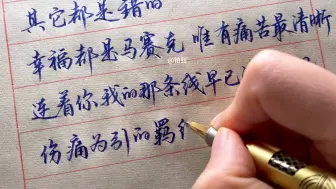 其它都是错的
幸福都是马赛克 唯有痛苦最清晰
连着你我的那条线早已
伤痛为引的羁